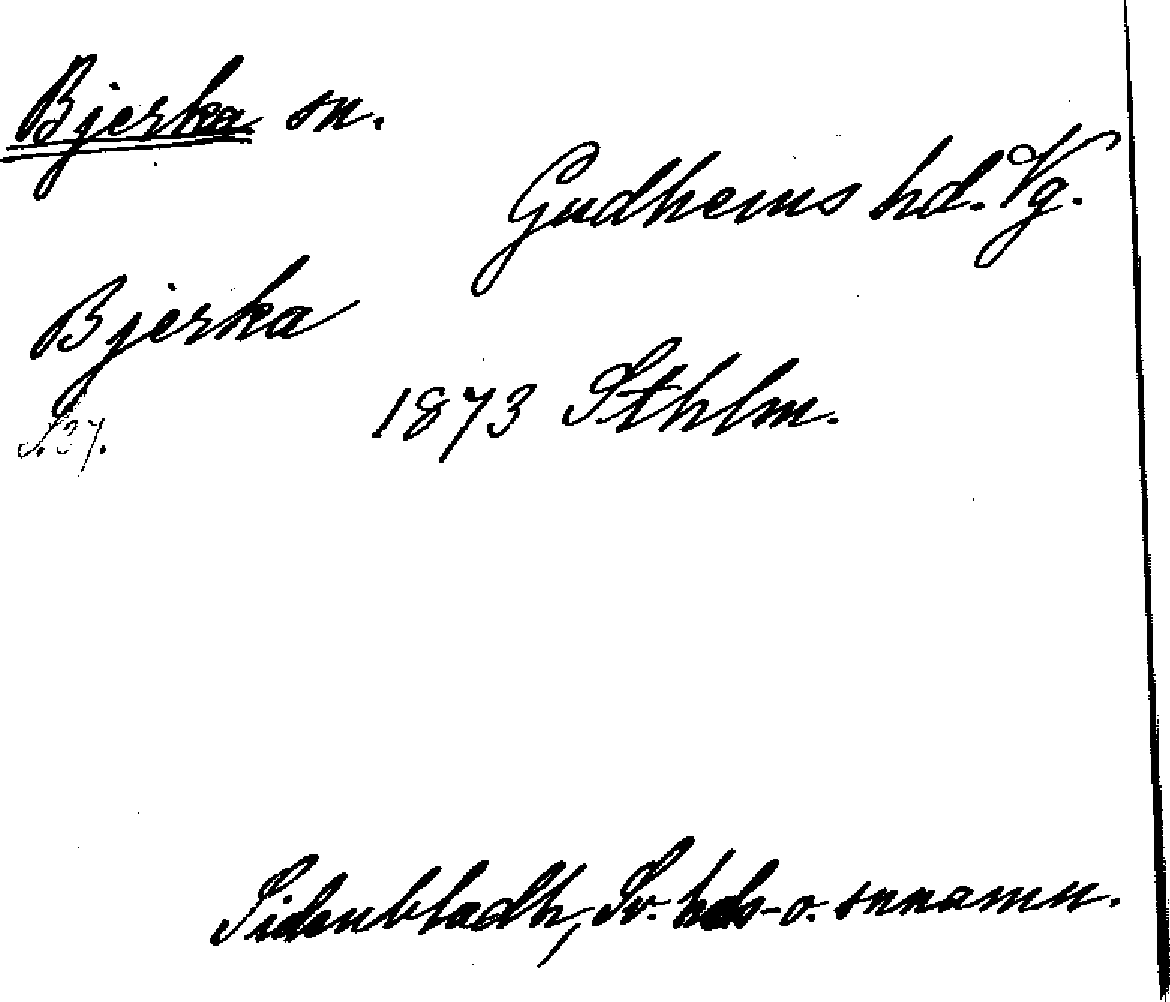 Bjerka sn.
Gudhems hd. Vg.
Bjerka
1873 Sthlm.
S. 37.
Sidenbladh, Sv. hds- o. snnamn.